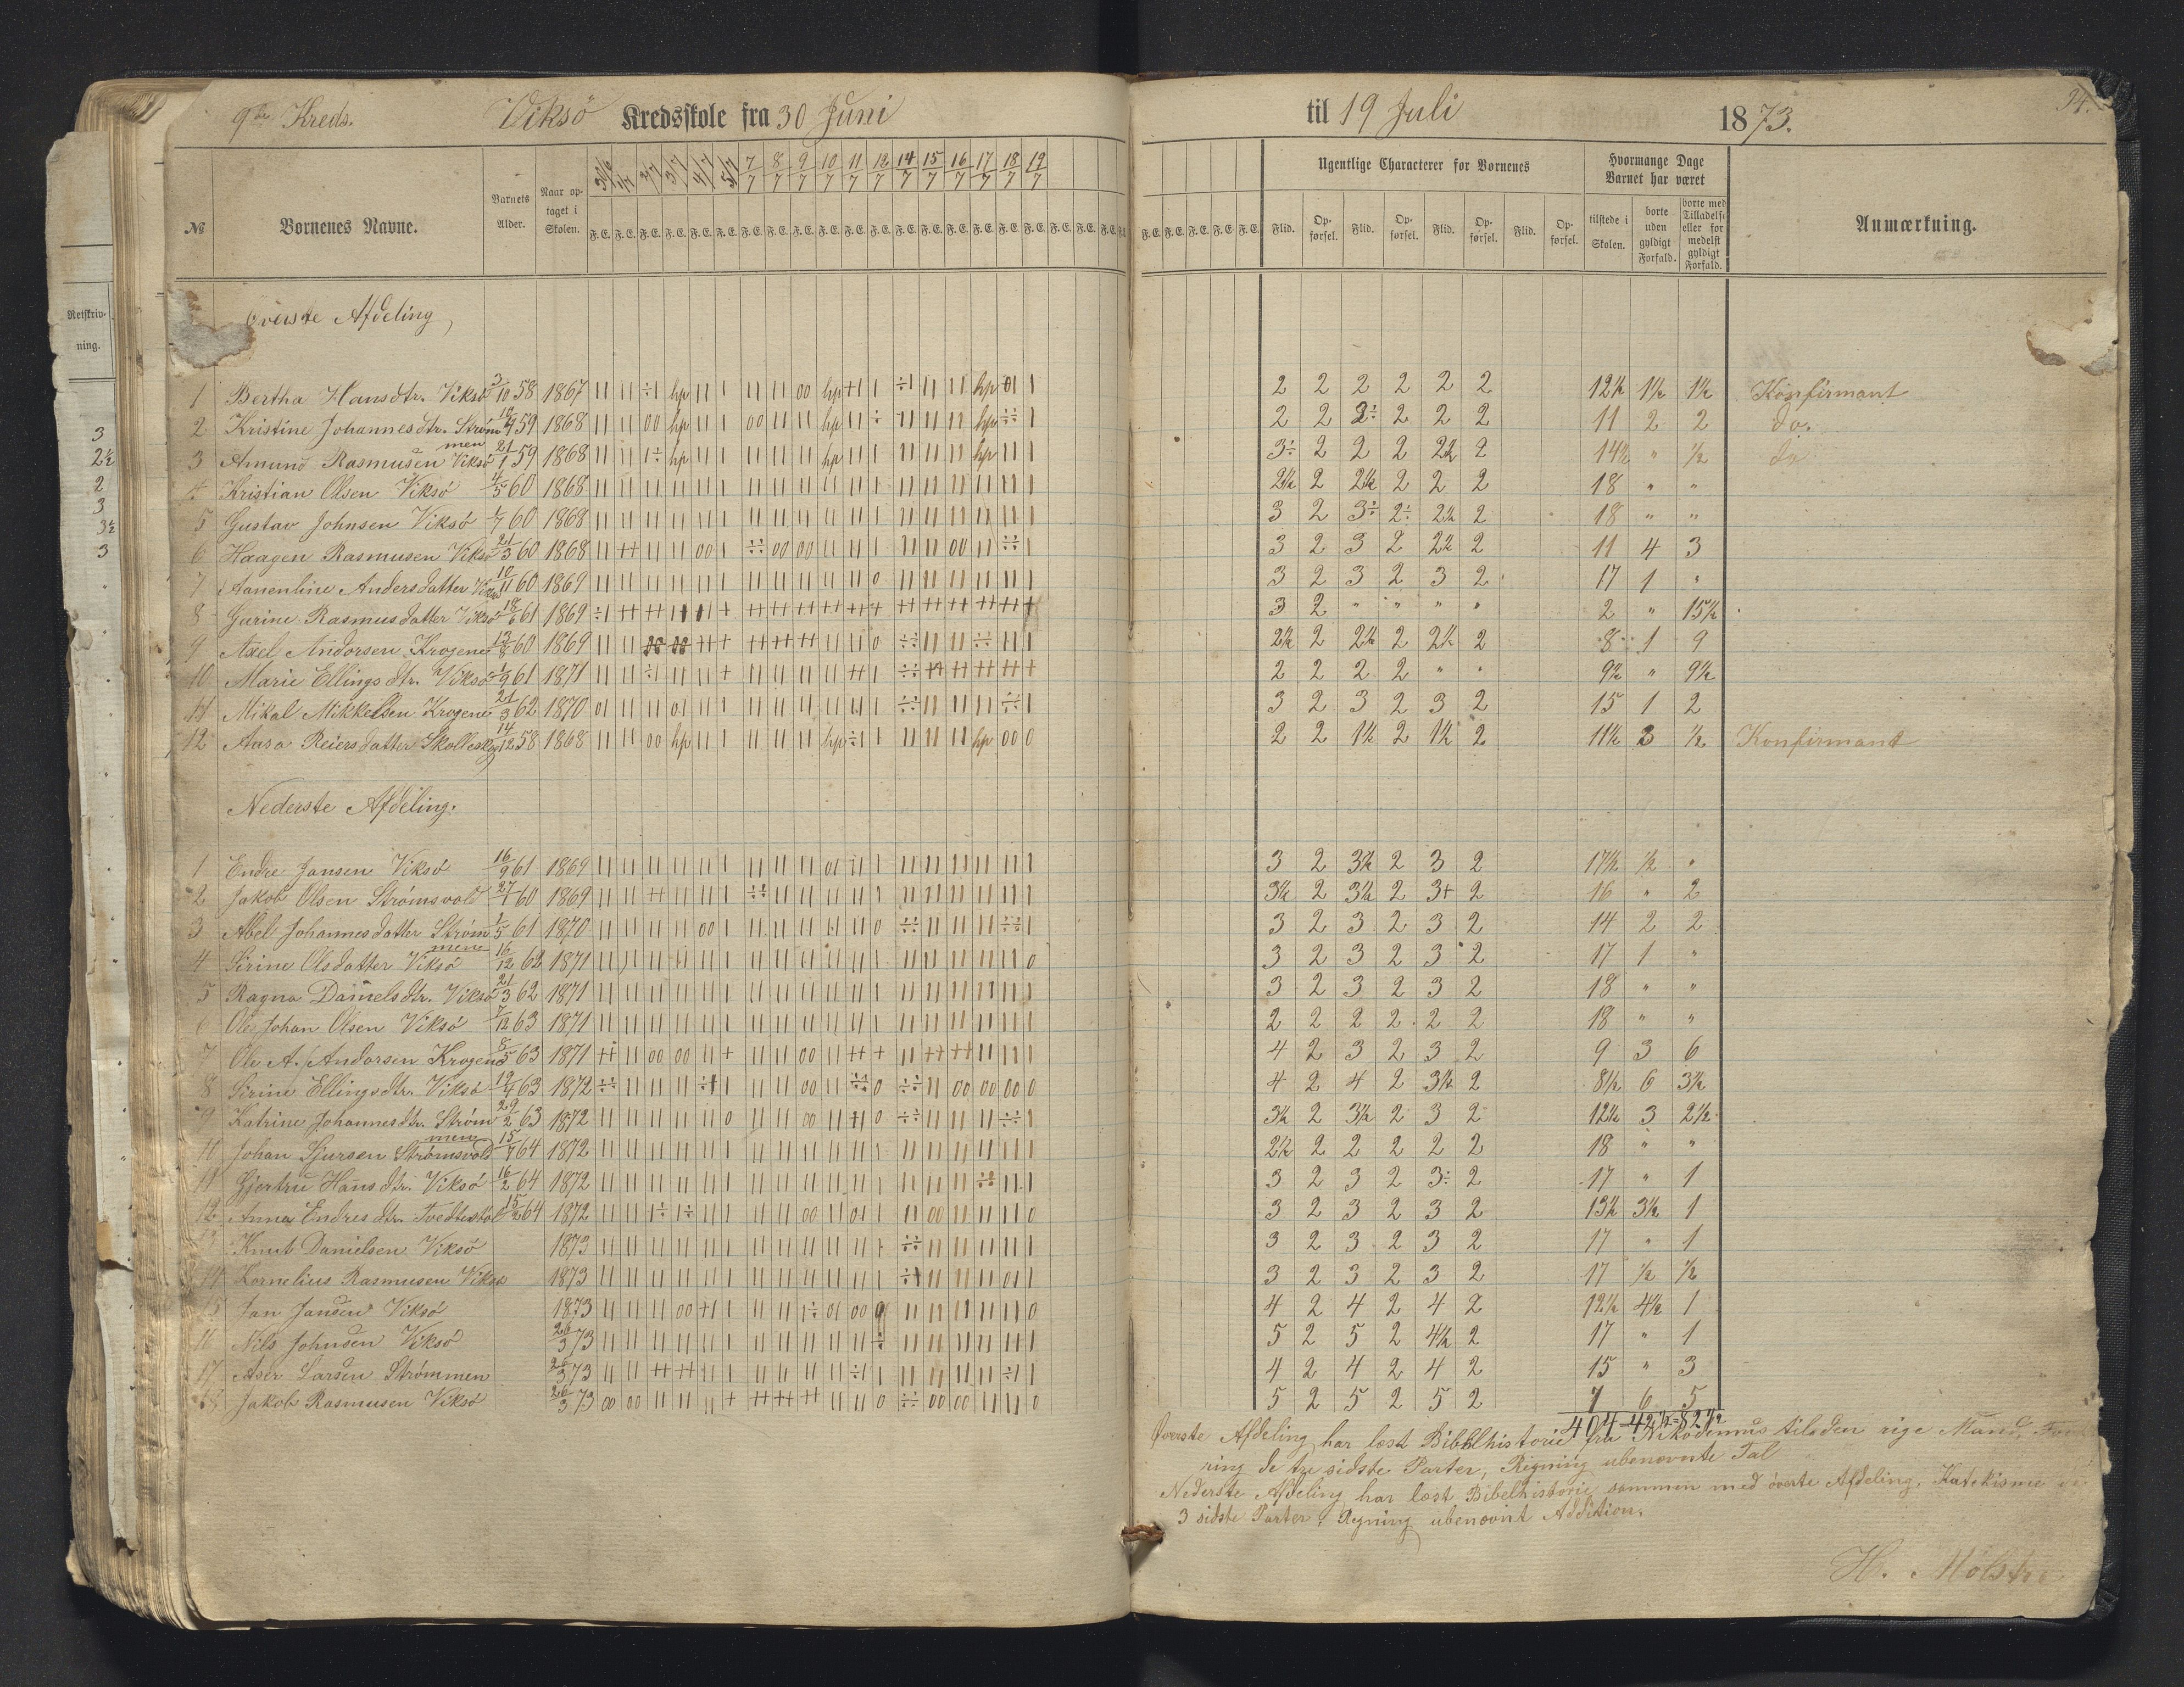 9de Kreds. Viksö Kredsskole fra 30 Juni til 19 Juli 1873. 94.
№ Børnenes Navne. Barnets Alder. Naar optaget i Skolen. 30/6 1/7 2/7 3/7 4/7 5/7 7/7 8/7 9/7 10/7 11/7 12/7 14/7 15/7 16/7 17/7 18/7 19/7 Ugentlige Characterer for Børnenes Hvormange Dage Barnet har været Anmærkning.
F. E. F. E. F. E. F. E. F. E. F. E. F. E. F. E. F. E. F. E. F. E. F. E. F. E. F. E. F. E. F. E. F. E. F. E. Flid. Opførsel. Flid. Opførsel. Flid. Opførsel. Flid. Opførsel. tilstede i Skolen. borte uden gyldigt Forfald. borte med Tilladelse eller formedelst gyldigt Forfald.
Retskrivning.
3
2½
2
3
3½
3
Øverste Afdeling
1 Bertha Hansdtr. Viksö 3/10 58 1867 2 2 2 2 2 2 12½ 1½ 1½ Konfirmant
2 Kristine Johannesdtr. Strømmen 10/4 59 1868 2 2 2÷ 2 2 2 11 2 2 do.
3 Amund Rasmusen Viksö 21/1 59 1868 3÷ 2 2 2 2½ 2 14½ " ½ do
4 Kristian Olsen Viksö 4/5 60 1868 2½ 2 2½ 2 2 2 18 " "
5 Gustav Johnsen Viksö 1/7 60 1868 3 2 3÷ 2÷ 2½ 2 18 " "
6 Haagen Rasmusen Viksö 21/3 60 1868 3 2 3 2 2½ 2 11 4 3
7 Aanenline Andersdatter Viksö 10/11 60 1869 3 2 3 2 3 2 17 1 "
8 Gurine Rasmusdatter Viksö 18/6 61 1869 3 2 " " " " 2 " 15½
9 Axel Andorsen Krogene 13/8 60 1869 2½ 2 2½ 2 2½ 2 8 1 9
10 Marie Ellingsdtr. Viksö 1/9 61 1871 2 2 2 2 " " 9½ " 9½
11 Mikal Mikkelsen Krogene 21/3 62 1870 3 2 3 2 3 2 15 1 2
12 Aasa Reiersdatter 14/12 58 1868 2 2 1½ 2 1½ 2 11½ 3 ½ Konfirmant
Nederste Afdeling.
1 Endre Jansen Viksö 16/9 61 1869 3 2 3½ 2 3 2 17½ ½ "
2 Jakob Olsen Strømsvold 27/7 60 1869 3½ 2 3½ 2 3+ 2 16 " 2
3 Abel Johannesdatter Strømmen 1/5 61 1870 3 2 3 2 3 2 14 2 2
4 Sirine Olsdatter Viksö 16/12 62 1871 3 2 3 2 3 2 17 1 "
5 Ragna Danielsdtr. Viksö 21/3 62 1871 3 2 3 2 3 2 18 " "
6 Ole Johan Olsen Viksö 7/12 63 1871 2 2 2 2 2 2 18 " "
7 Ole A. Andorsen Krogene 8/5 63 1871 4 2 3 2 3 2 9 3 6
8 Sirine Ellingsdtr. Viksö 19/4 63 1872 4 2 4 2 3½ 2 8½ 6 3½
9 Katrine Johannesdtr. Strømmen 29/2 63 1872 3½ 2 3½ 2 3 2 12½ 3 2½
10 Johan Sjursen Strømsvold 15/7 64 1872 2½ 2 2 2 2 2 18 " "
11 Gjertru Hansdtr. Viksö 16/2 64 1872 3 2 3 2 3÷ 2 17 " 1
12 Anna Endresdtr. 15/2 64 1872 3 2 3 2 3 2 13½ 3½ 1
13 Knut Danielsen Viksö 1873 3 2 3 2 3 2 17 " 1
14 Kornelius Rasmusen Viksö 1873 3 2 3 2 3 2 17 ½ ½
15 Jan Jansen Viksö 1873 4 2 4 2 4 2 12½ 4½ 1
16 Nils Johnsen Viksö 26/3 73 5 2 5 2 4½ 2 17 " 1
17 Aser Larsen Strømmen 26/3 73 4 2 4 2 4 2 15 " 3
18 Jakob Rasmusen Viksö 26/3 73 5 2 5 2 5 2 7 6 5
404 - 42½ = 82½
Øverste Afdeling har læst Bibelhistorie fra Nikodemus til den rige Mand,
ring de tre sidste Parter, Regning ubenævnte Tal
Nederste Afdeling har læst Bibelhistorie sammen med øverste Afdeling. Katekisme
3 sidste Parter, Regning ubenævnt Addition.
H. Mølstre